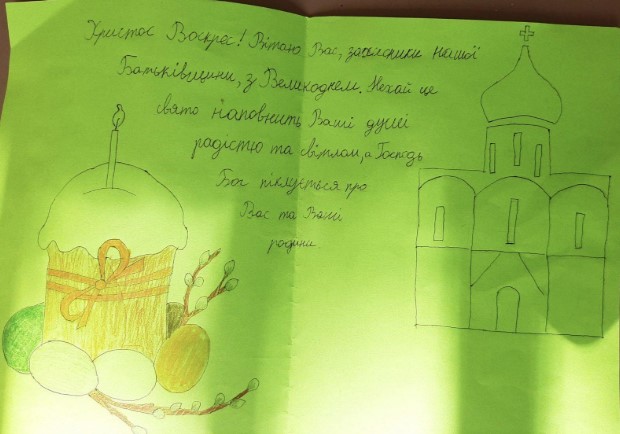 Христос Воскрес! Вітаю Вас, захисники нашої
Батьківщини, з Великоднем. Нехай це
свято наповнить Ваші душі
радістю та світлом, а Господь
Бог піклується про
Вас та Ваші
родини